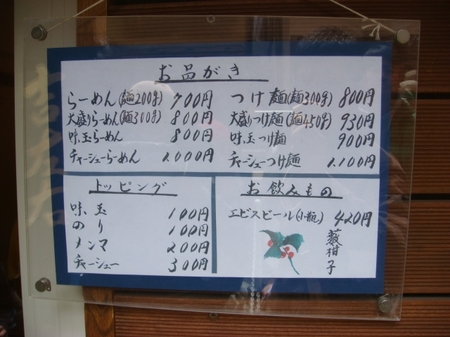 お品がき
らーめん(麺200g) 700円
大盛りらーめん(麺300g) 800円
味玉らーめん 800円
チャーシューらーめん 1.000円
つけ麺(麺300g) 800円
大盛りつけ麺(麺450g) 950円
味玉つけ麺 900円
チャーシューつけ麺 1.100円
トッピング
味玉 100円
のり 100円
メンマ 200円
チャーシュー 300円
お飲みもの
エビスビール(小瓶) 420円
藪柑子